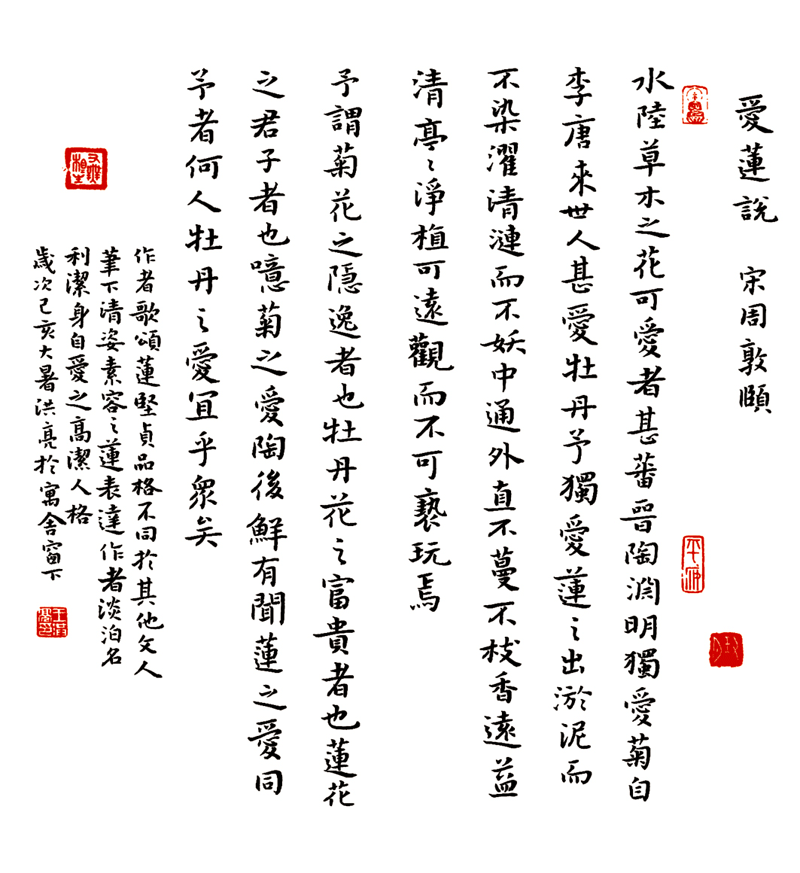 愛蓮説 宋周敦頤
水陸草木之花可愛者甚蕃晉陶淵明獨愛菊自
李唐來世人甚愛牡丹予獨愛蓮之出淤泥而
不染濯清漣而不妖中通外直不蔓不枝香遠益
清亭〻淨植可遠觀而不可褻玩焉
予謂菊花之隱逸者也牡丹花之富貴者也蓮花
之君子者也噫菊之愛陶後鮮有聞蓮之愛同
予者何人牡丹之愛宜乎眾矣
作者歌頌蓮堅貞品格不同於其他文人
筆下清姿素容之蓮表達作者淡泊名
利潔身自愛之高潔人格
歲次己亥大暑洪亮於寓舍窗下